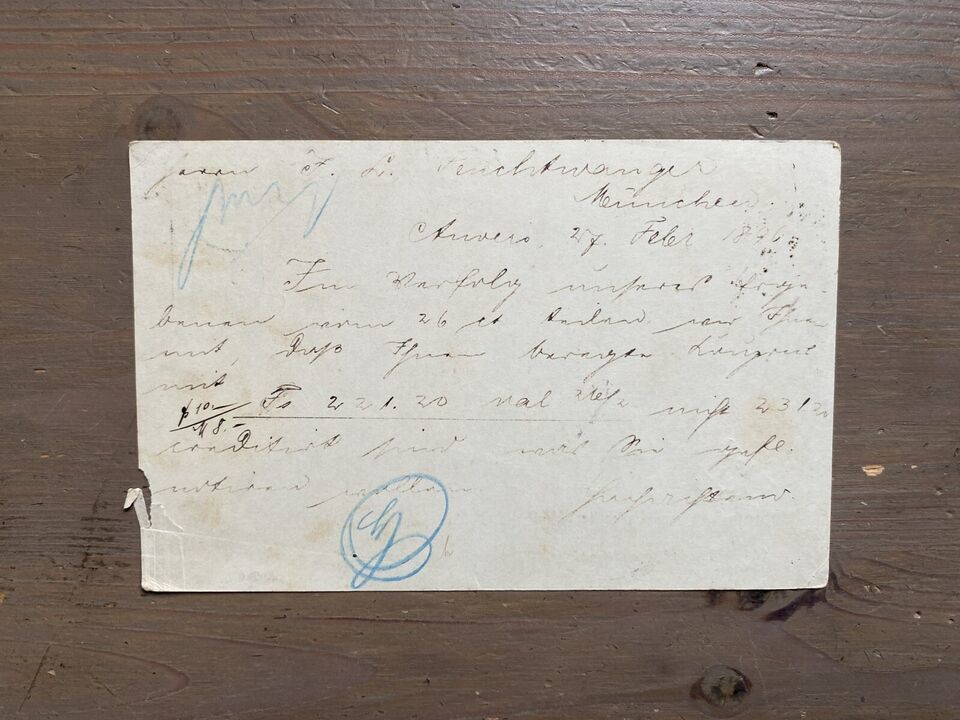 Herrn J. L. Feuchtwanger
München.
Anvers, 27. Febr 1896
Im Verfolg unseres Erge-
benen vom 26 ct teilen wir Ihnen
mit, daß Ihnen beregte Coupons
mit
Fs 221.20 val 26/2 nicht 231.20
creditirt sind was Sie gefl.
notiren wollen.